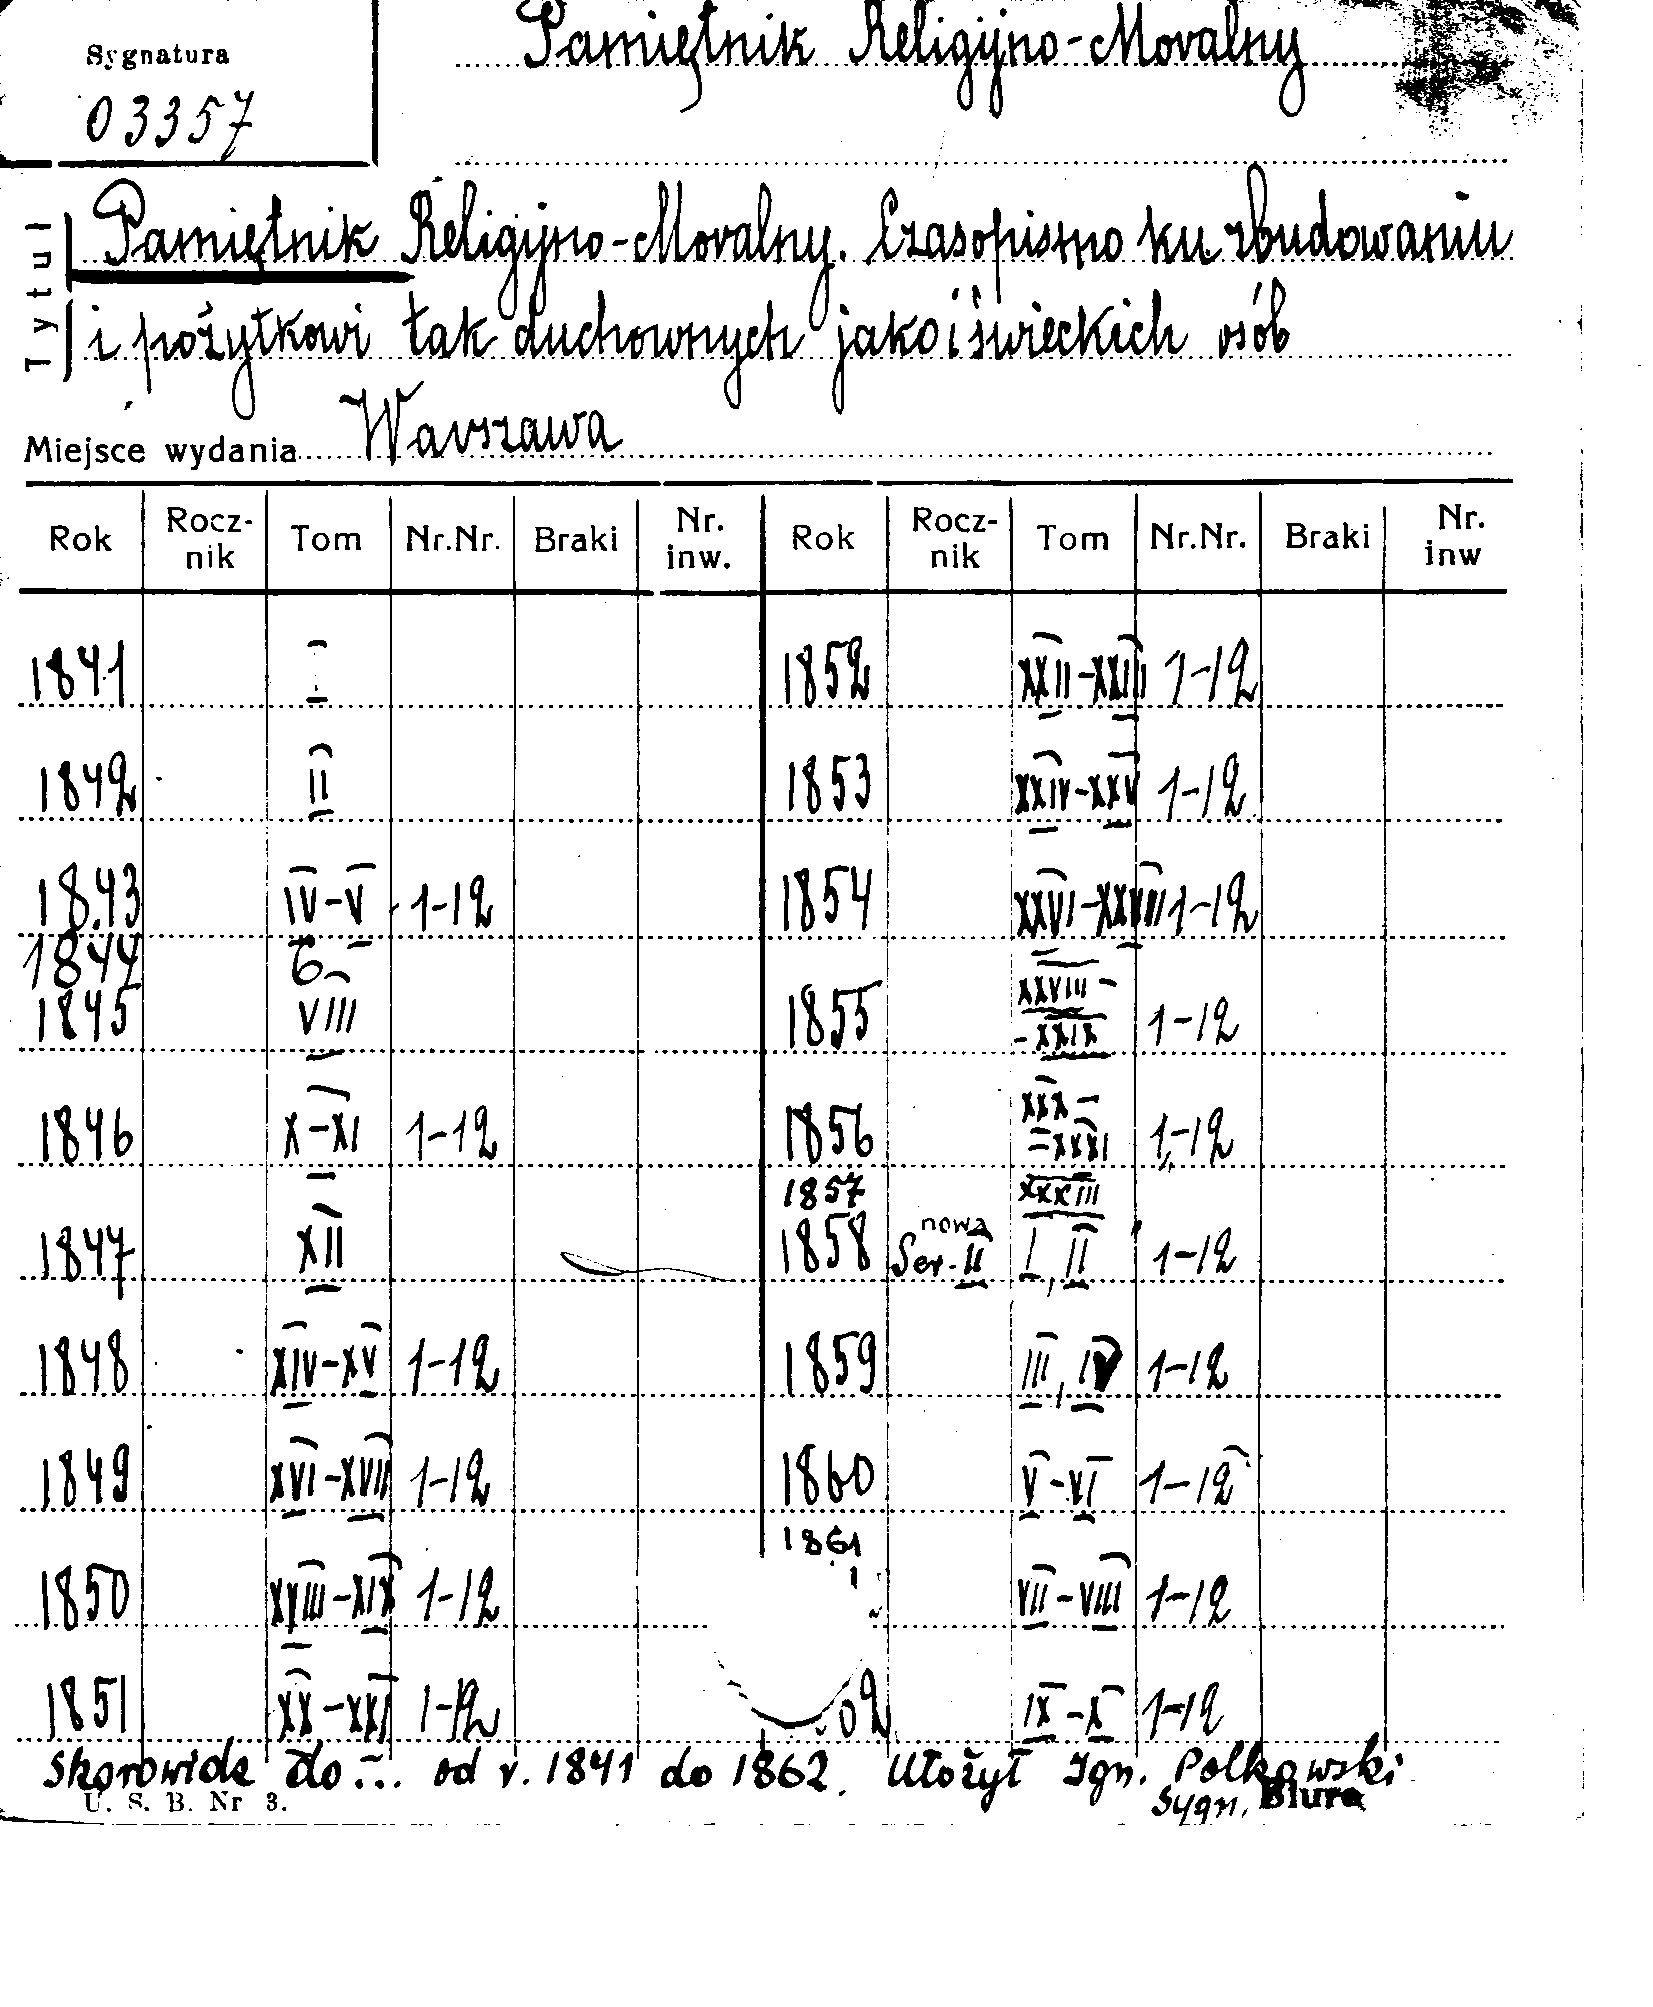 Sygnatura
03357
Pamiętnik Religijno-Moralny
Tytuł
Pamiętnik Religijno-Moralny. Czasopismo ku zbudowaniu
i pożytkowi tak duchownych jako i świeckich osób
Miejsce wydania Warszawa
Rok Rocz-nik Tom Nr.Nr. Braki Nr. inw. Rok Rocz-nik Tom Nr.Nr. Braki Nr. inw
1841 I 1852 XXII-XXIII 1-12
1842 II 1853 XXIV-XXV 1-12
1843 IV-V 1-12 1854 XXVI-XXVII 1-12
1844 6
1845 VIII 1855 XXVIII--XXIX 1-12
1846 X-XI 1-12 1856 XXX-=XXXI 1-12
1857 XXXIII
1847 XII 1858 nowa Ser. II I, II 1-12
1848 XIV-XV 1-12 1859 III, IV 1-12
1849 XVI-XVII 1-12 1860 V-VI 1-12
1861
1850 XVIII-XIX 1-12 VII-VIII 1-12
1851 XX-XXI 1-12 IX-X 1-12
Skorowidz do... od r. 1841 do 1862. Ułożył Ign. Polkowski
U. S. B. Nr 3. Sygn. Biura